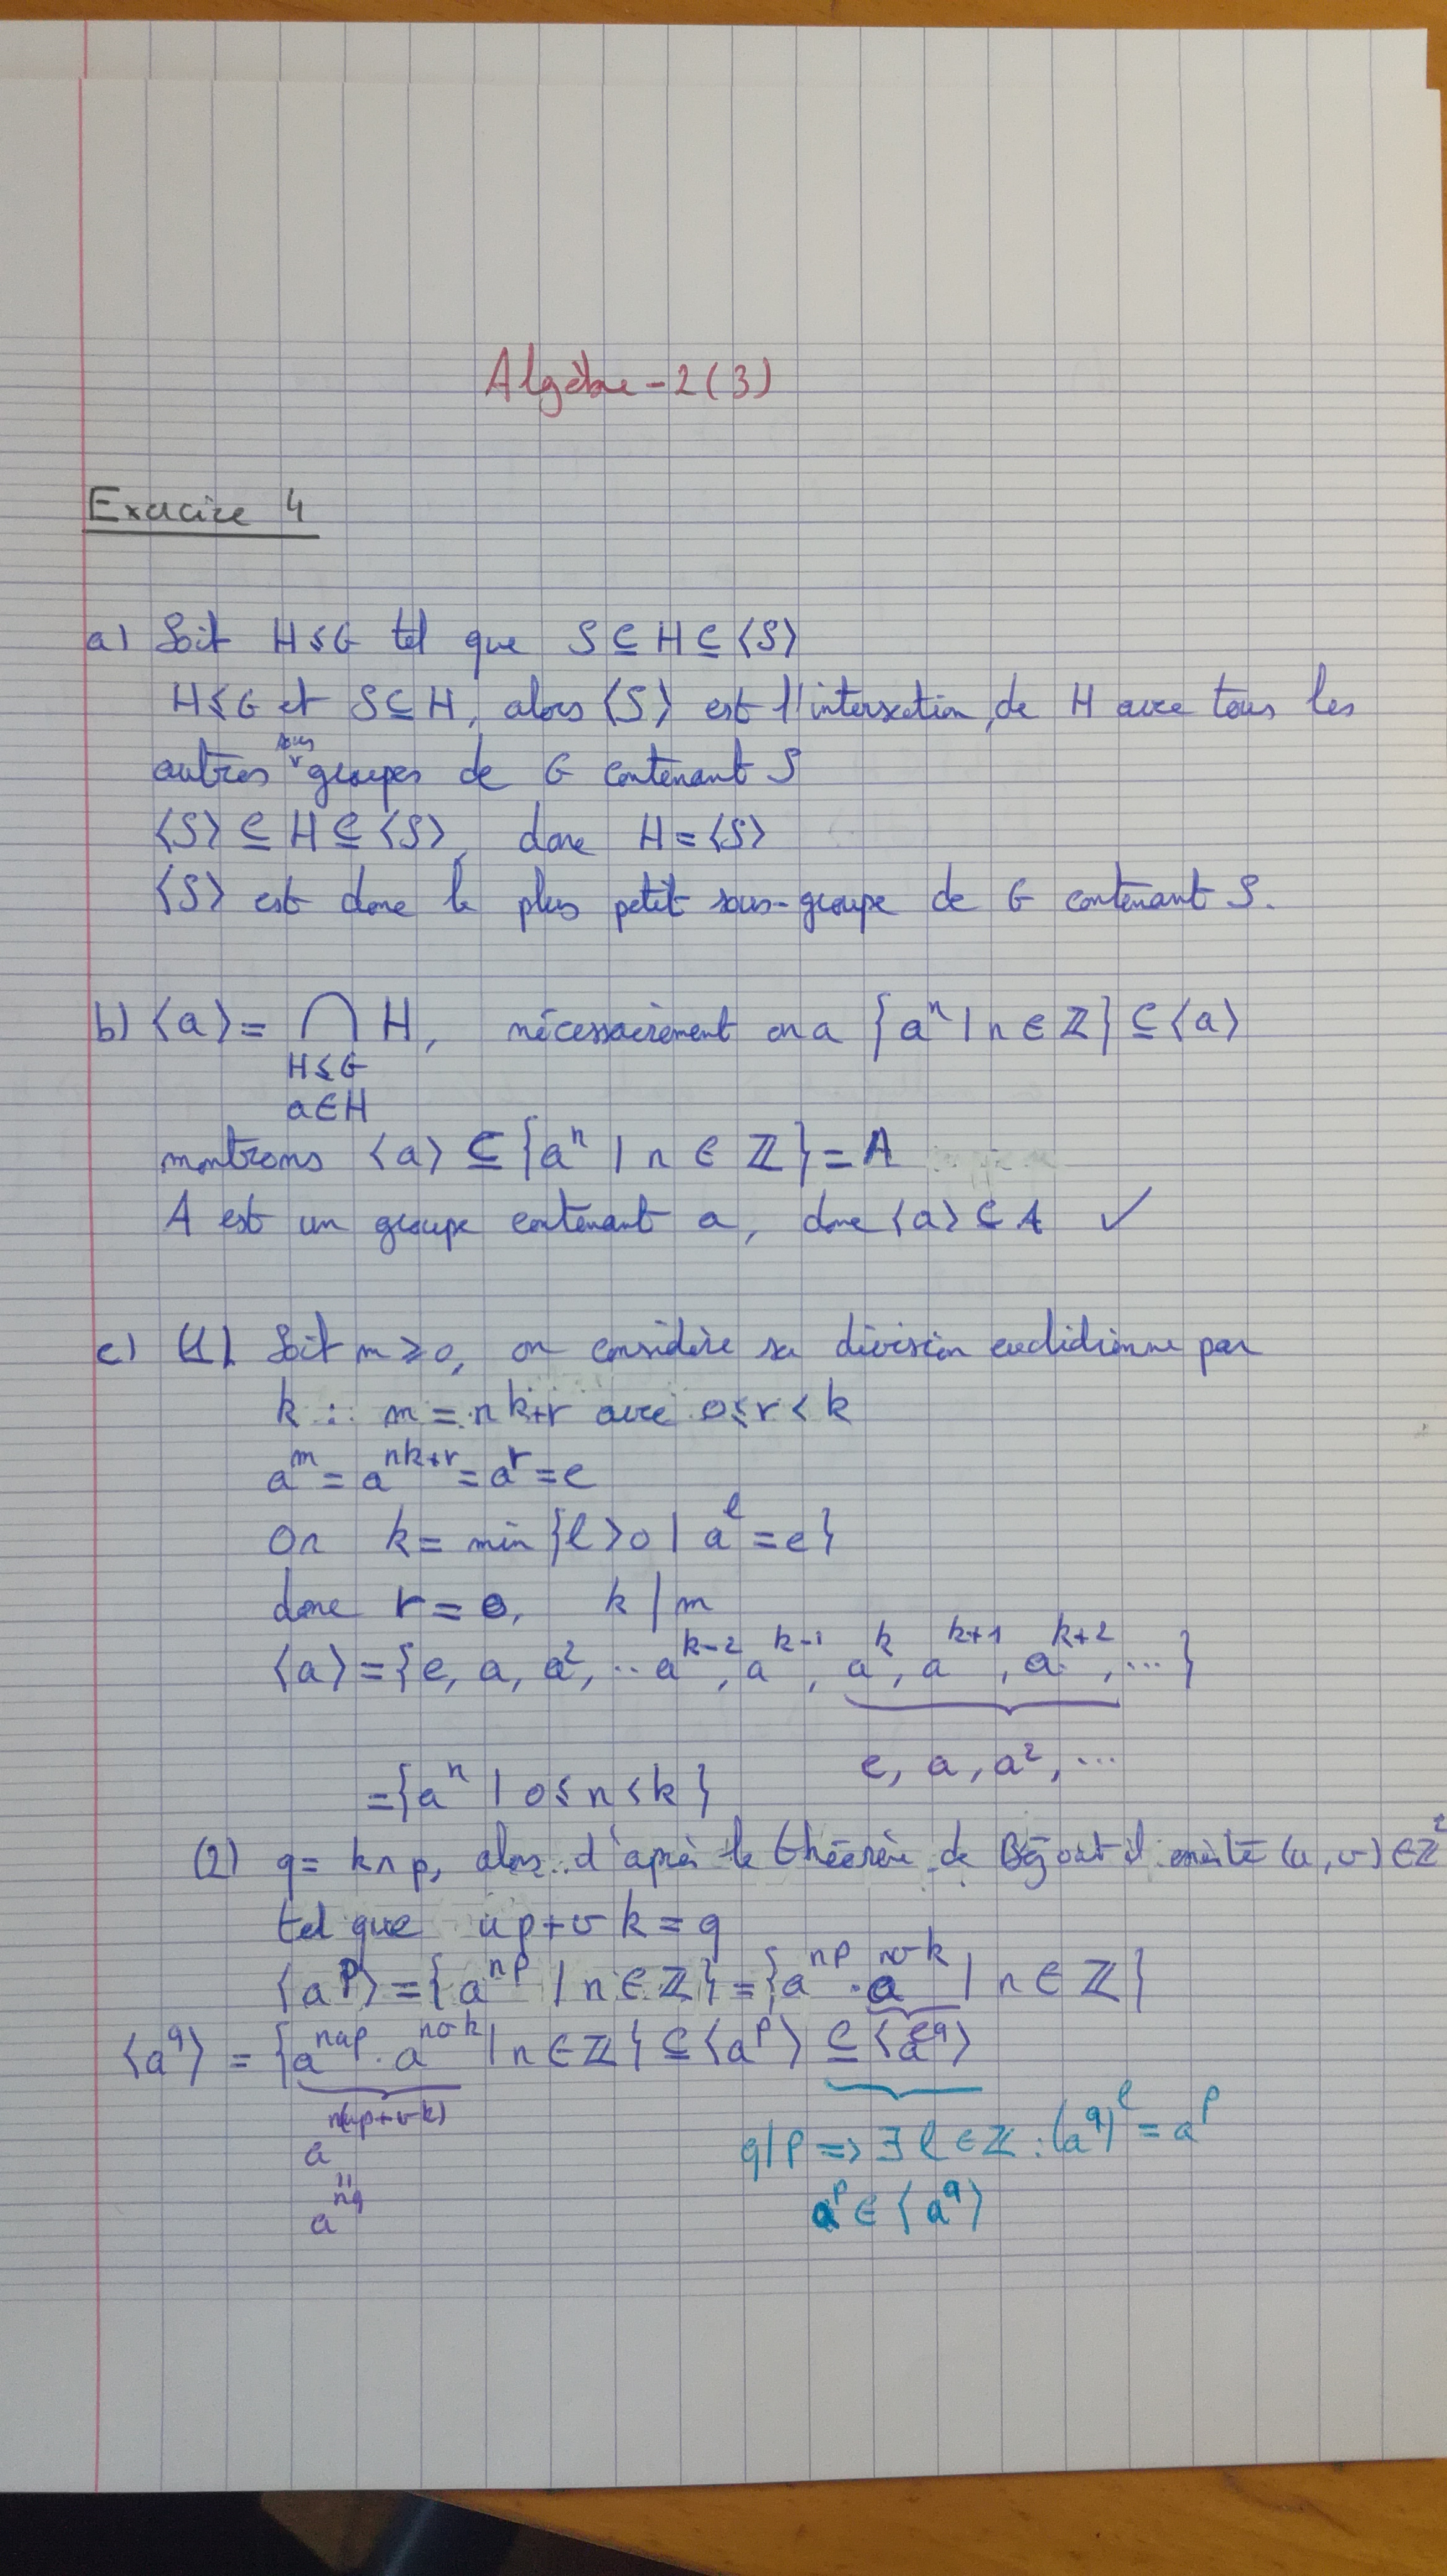 Algèbre-2(3)
Exercice 4
a) Soit H ≤ G tel que S ⊆ H ⊆ ⟨S⟩
H ≤ G et S ⊆ H, alors ⟨S⟩ est l'intersection de H avec tous les
autres sous groupes de G contenant S
⟨S⟩ ⊆ H ⊆ ⟨S⟩, donc H = ⟨S⟩
⟨S⟩ est donc le plus petit sous-groupe de G contenant S.
b) ⟨a⟩ = ⋂ H, nécessairement on a {aⁿ | n ∈ ℤ} ⊆ ⟨a⟩
H ≤ G
a ∈ H
montrons ⟨a⟩ ⊆ {aⁿ | n ∈ ℤ} = A
A est un groupe contenant a, donc ⟨a⟩ ⊆ A ✓
c) (1) Soit m ≥ 0, on considère sa division euclidienne par
k : m = nk+r avec 0 ≤ r < k
a^m = a^{nk+r} = a^r = e
Or k = min {l > 0 | a^l = e}
donc r = 0, k | m
⟨a⟩ = {e, a, a², .. a^{k-2}, a^{k-1}, a^k, a^{k+1}, a^{k+2}, ...}
e, a, a², ...
= {aⁿ | 0 ≤ n < k}
(2) q = k ∧ p, alors d'après le théorème de Bézout il existe (u, v) ∈ ℤ²
tel que up + vk = q
⟨a^p⟩ = {a^{np} | n ∈ ℤ} = {a^{np} · a^{nvk} | n ∈ ℤ}
e
⟨a^q⟩ = {a^{nup} · a^{nvk} | n ∈ ℤ} ⊆ ⟨a^p⟩ ⊆ ⟨a^q⟩
a^{n(up+vk)}
=
a^{nq}
q | p ⇒ ∃ l ∈ ℤ : (a^q)^l = a^p
a^p ∈ ⟨a^q⟩